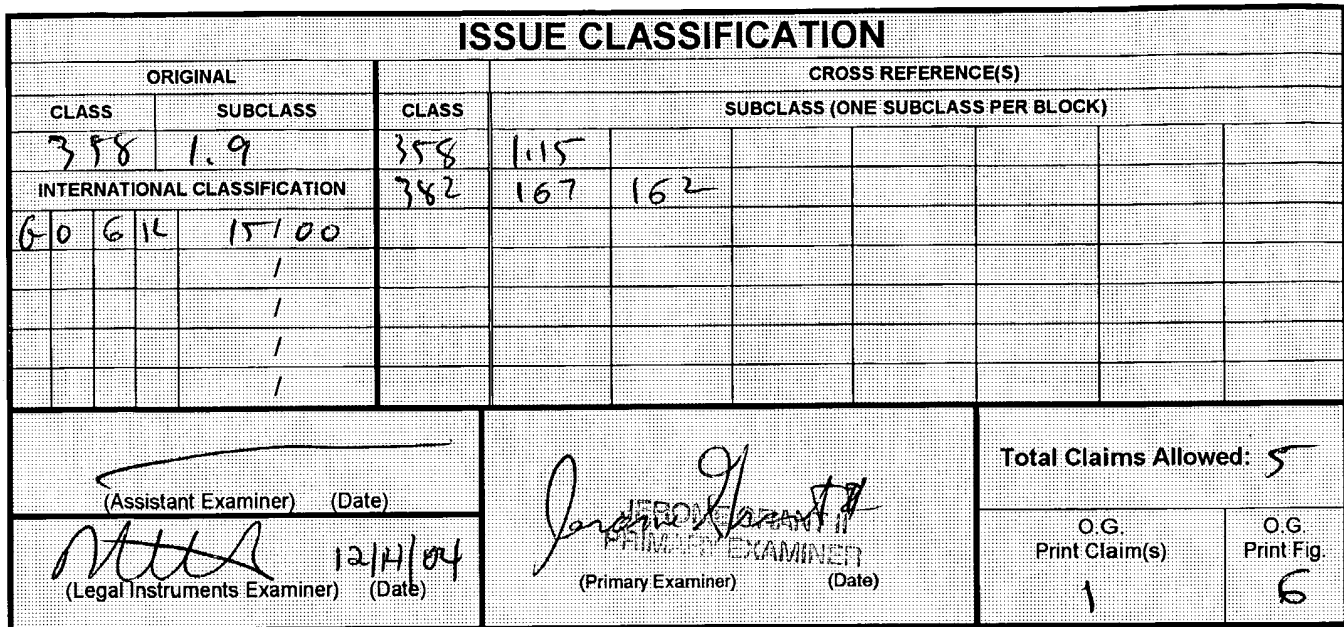 ISSUE CLASSIFICATION
ORIGINAL CROSS REFERENCE(S)
CLASS SUBCLASS CLASS SUBCLASS (ONE SUBCLASS PER BLOCK)
358 1.9 358 1.15
INTERNATIONAL CLASSIFICATION 382 167 162
G 0 6 K 15/00
/
/
/
/
Total Claims Allowed: 5
(Assistant Examiner) (Date)
JEROME GRANT II
PRIMARY EXAMINER
(Primary Examiner) (Date)
(Legal Instruments Examiner) (Date)
O.G.
Print Claim(s)
1
O.G.
Print Fig.
6